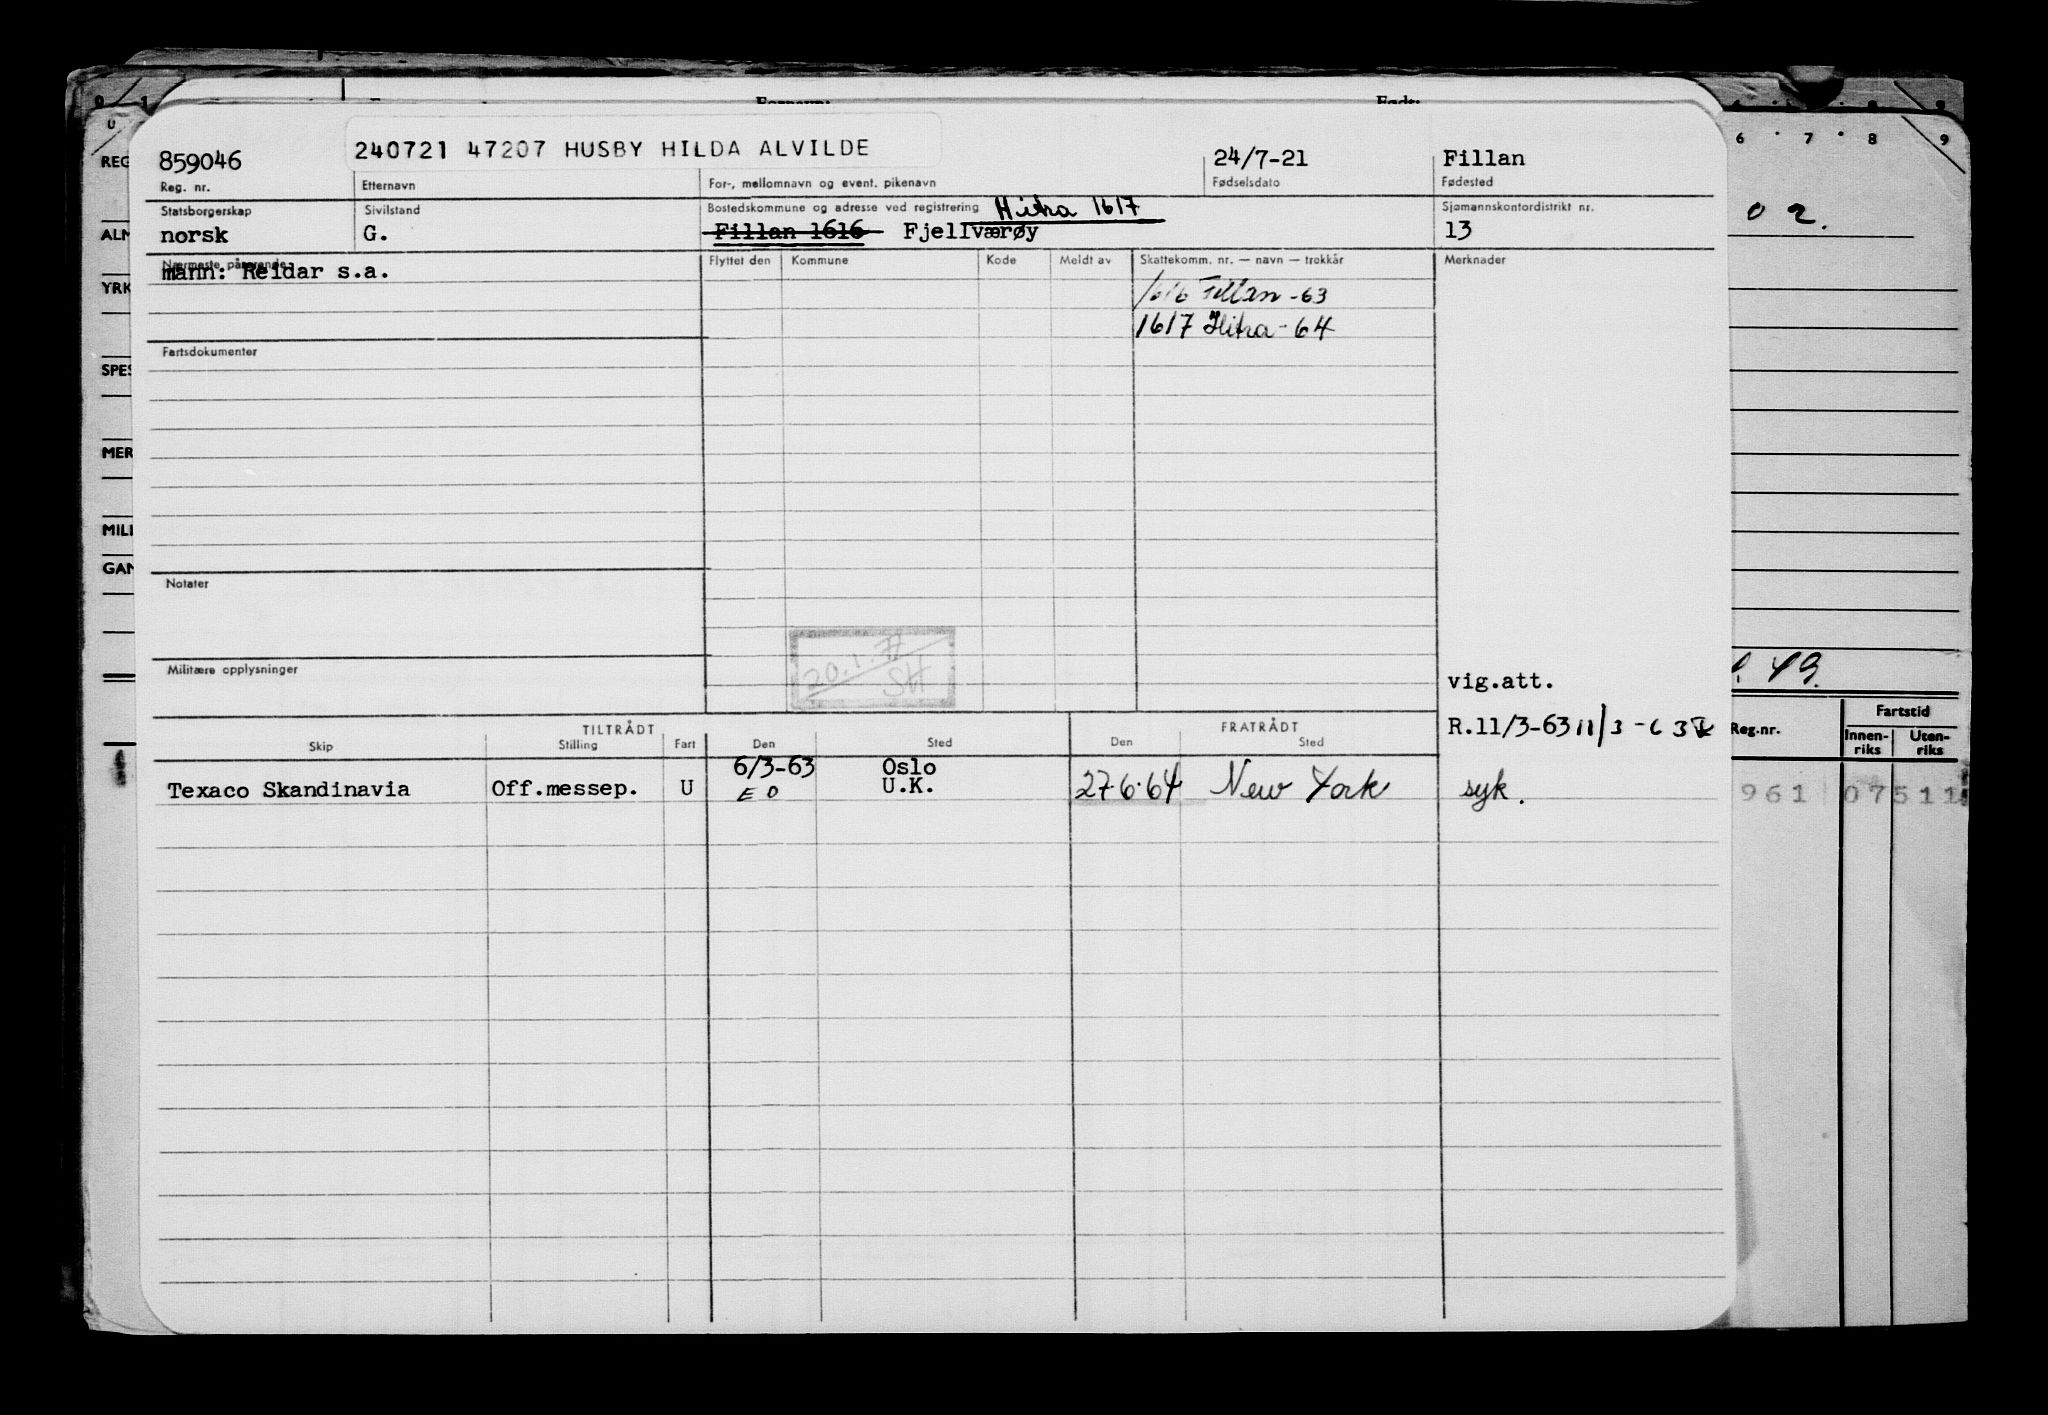 Fornavn: Født:
0 1 6 7 8 9
859046 240721 47207 HUSBY HILDA ALVILDE 24/7-21 Fillan
Reg. nr. Etternavn For-, mellomnavn og event. pikenavn Fødselsdato Fødested
Statsborgerskap Sivilstand Bostedskommune og adresse ved registrering Hitra 1617 Sjømannskontordistrikt nr.
norsk G. Fillan 1616 Fjellværøy 13
Nærmeste pårørende Flyttet den Kommune Kode Meldt av Skattekomm. nr. — navn — trekkår Merknader
mann: Reidar s.a.
1616 Fillan -63
1617 Hitra - 64
Fartsdokumenter
Notater
20.1.77
SH
Militære opplysninger
vig.att.
R.11/3-63 11/3 -63
TILTRÅDT FRATRÅDT
Skip Stilling Fart Den Sted Den Sted
6/3-63 Oslo
Texaco Skandinavia Off.messep. U E O U.K. 27·6·64 New York syk.
REG
ALM
YRK
SPES
MER
MILI
GAN
0 2.
49.
Reg.nr. Fartstid
Innen-riks Uten-riks
961 07511